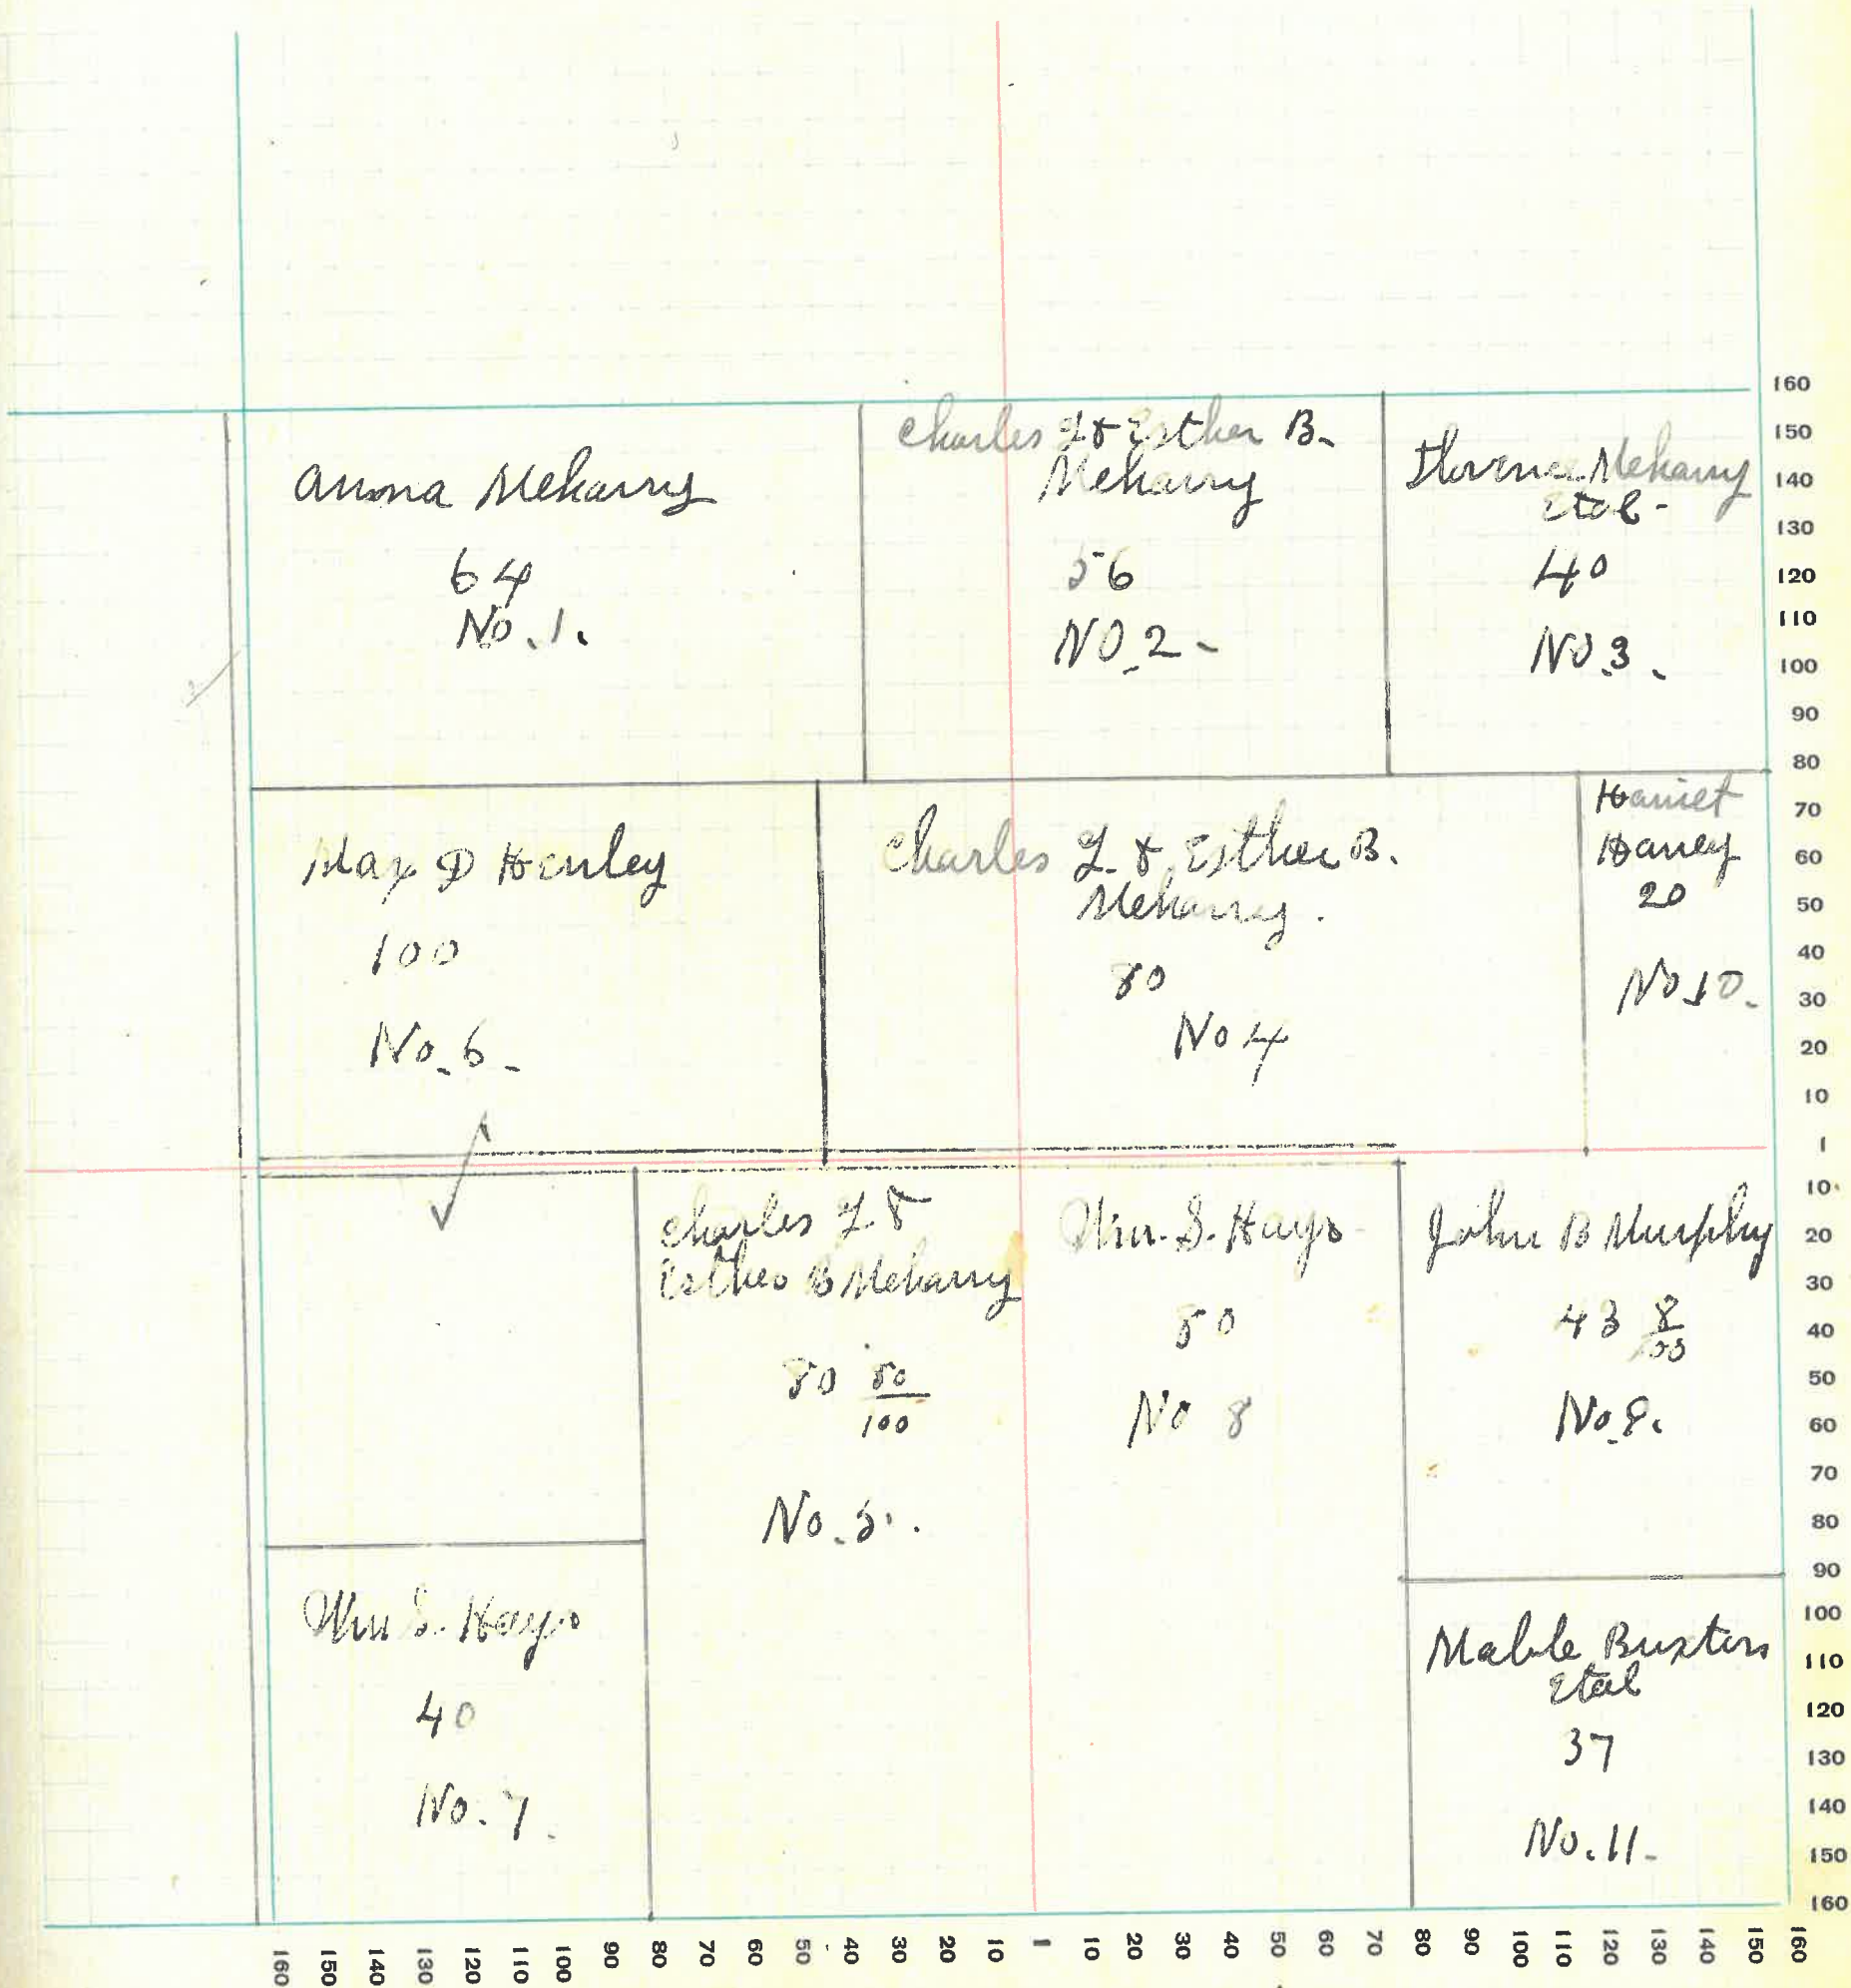 Anona Meharry
64
No. 1.
Charles L & Esther B.
Meharry
56
NO. 2-
Florence Meharry
Etal-
40
NO 3.
Max D Henley
100
No. 6-
Charles L. & Esther B.
Meharry.
80
No 4
Harriet
Haney
20
No 10.
Charles L &
Esther B Meharry
80 80/100
No. 5.
Wm. S. Hays
80
No 8
John B Murphy
43 8/100
No. 9.
Wm S. Hays
40
No. 7.
Mable Buxton
Etal
37
No. 11-
160
150
140
130
120
110
100
90
80
70
60
50
40
30
20
10
1
10
20
30
40
50
60
70
80
90
100
110
120
130
140
150
160
160 150 140 130 120 110 100 90 80 70 60 50 40 30 20 10 1 10 20 30 40 50 60 70 80 90 100 110 120 130 140 150 160